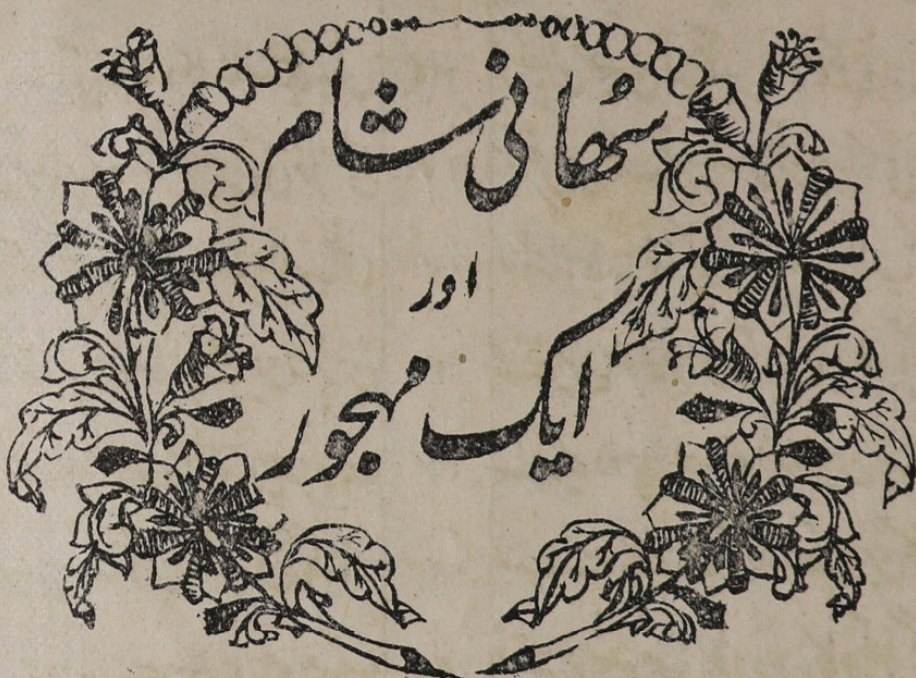 سُہانی شام
اور
ایک مہجور